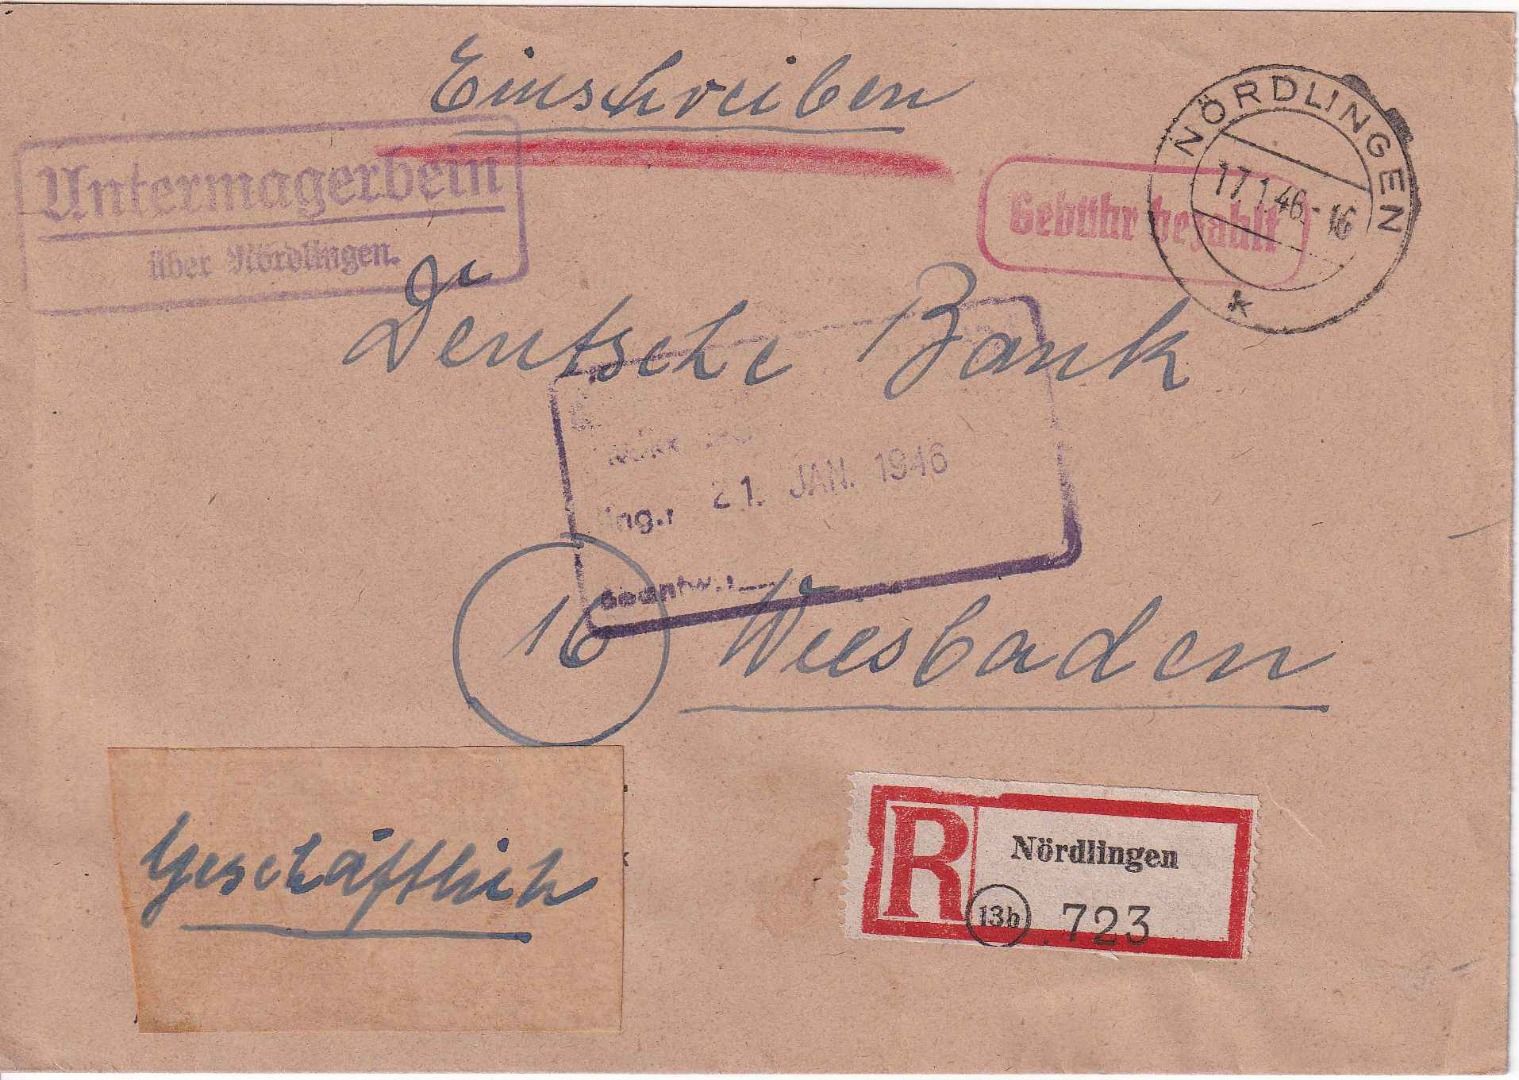 Einschreiben
Untermagerbein
über Nördlingen.
Gebühr bezahlt
NÖRDLINGEN
17.1.46.-16
k
Deutsche Bank
21. JAN. 1946
Beantw.:
16 Wiesbaden
Geschäftlich
R Nördlingen
13b 723